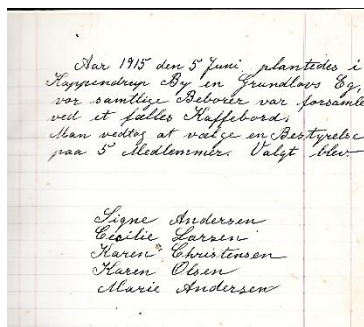 Aar 1915 den 5 Juni plantedes i
Kappendrup By en Grundlovs Eg,
vor samtlige Beboer var forsamle
ved et fælles Kaffebord.
Man vedtog at vælge en Bestyrelse
paa 5 Medlemmer. Valgt blev
Signe Andersen
Cecilie Larsen
Karen Christensen
Karen Olsen
Marie Andersen